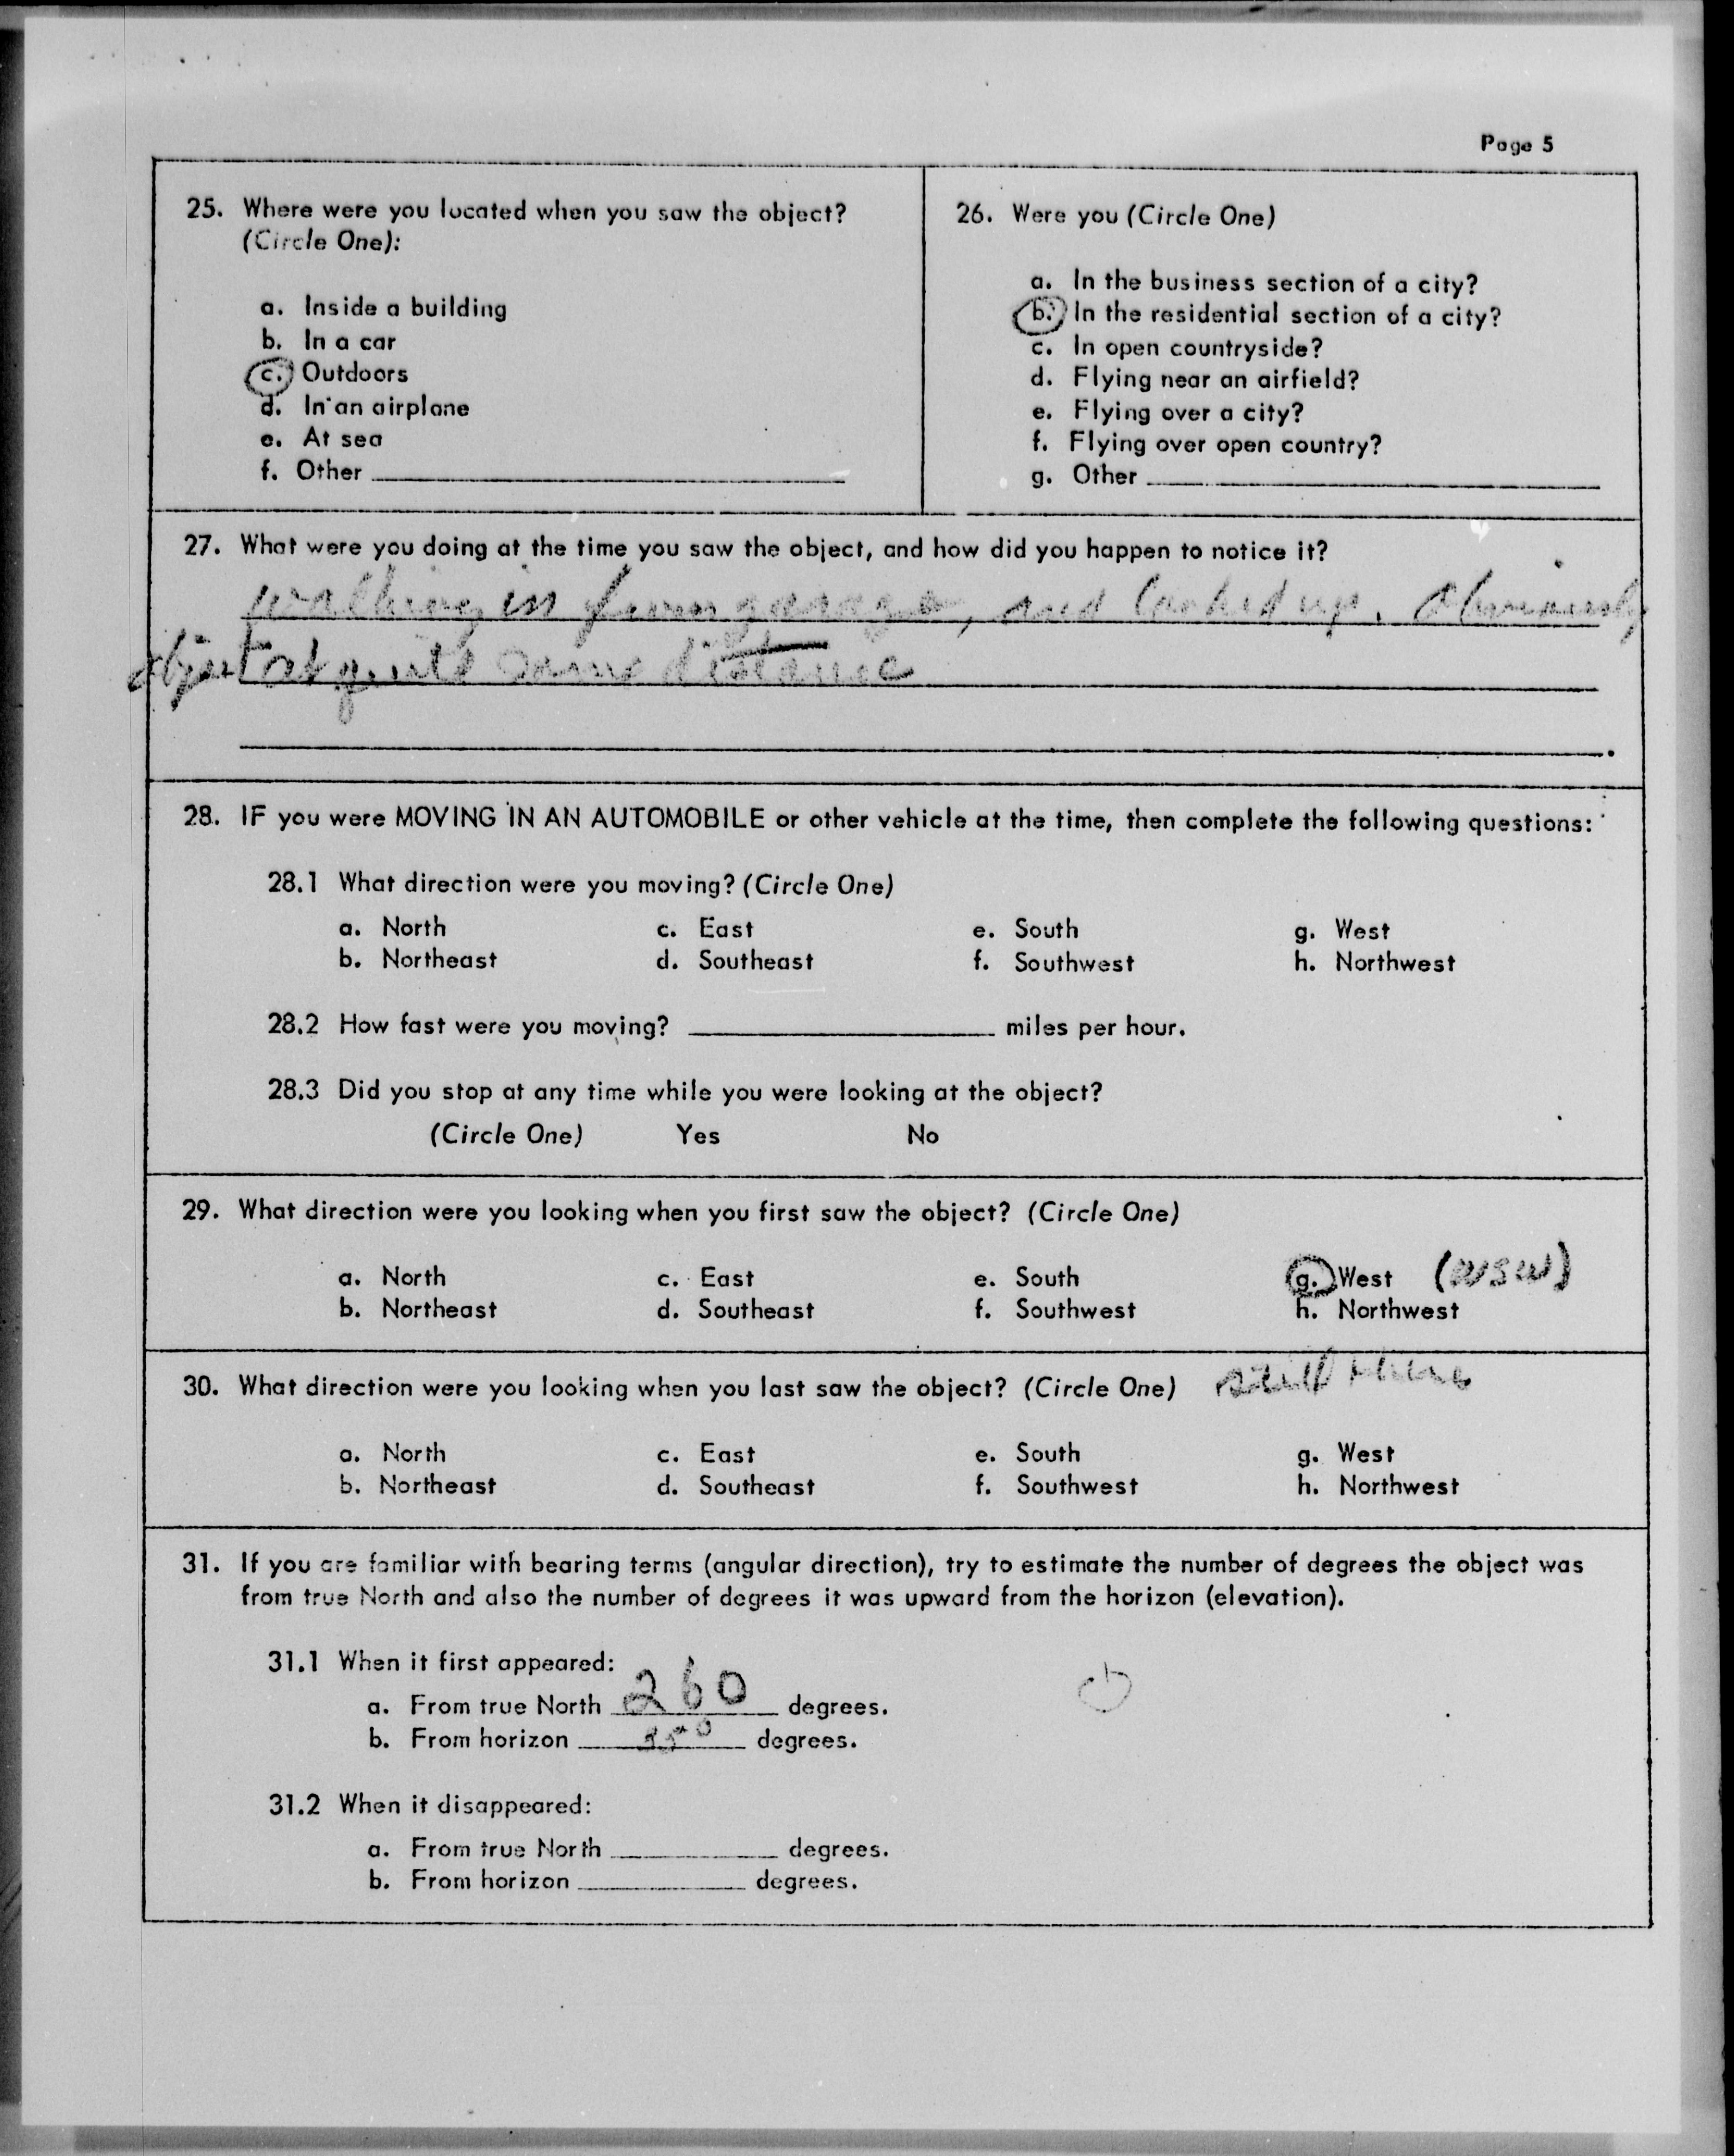 Page 5
25. Where were you located when you saw the object?
(Circle One):
a. Inside a building
b. In a car
c. Outdoors
d. In an airplane
e. At sea
f. Other
26. Were you (Circle One)
a. In the business section of a city?
b. In the residential section of a city?
c. In open countryside?
d. Flying near an airfield?
e. Flying over a city?
f. Flying over open country?
g. Other
27. What were you doing at the time you saw the object, and how did you happen to notice it?
walking in from garage, and looked up. Obviously
object at quite some distance
28. IF you were MOVING IN AN AUTOMOBILE or other vehicle at the time, then complete the following questions:
28.1 What direction were you moving? (Circle One)
a. North c. East e. South g. West
b. Northeast d. Southeast f. Southwest h. Northwest
28.2 How fast were you moving? miles per hour.
28.3 Did you stop at any time while you were looking at the object?
(Circle One) Yes No
29. What direction were you looking when you first saw the object? (Circle One)
a. North c. East e. South g. West (WSW)
b. Northeast d. Southeast f. Southwest h. Northwest
30. What direction were you looking when you last saw the object? (Circle One) still there
a. North c. East e. South g. West
b. Northeast d. Southeast f. Southwest h. Northwest
31. If you are familiar with bearing terms (angular direction), try to estimate the number of degrees the object was
from true North and also the number of degrees it was upward from the horizon (elevation).
31.1 When it first appeared:
a. From true North 260 degrees.
b. From horizon 35° degrees.
31.2 When it disappeared:
a. From true North degrees.
b. From horizon degrees.